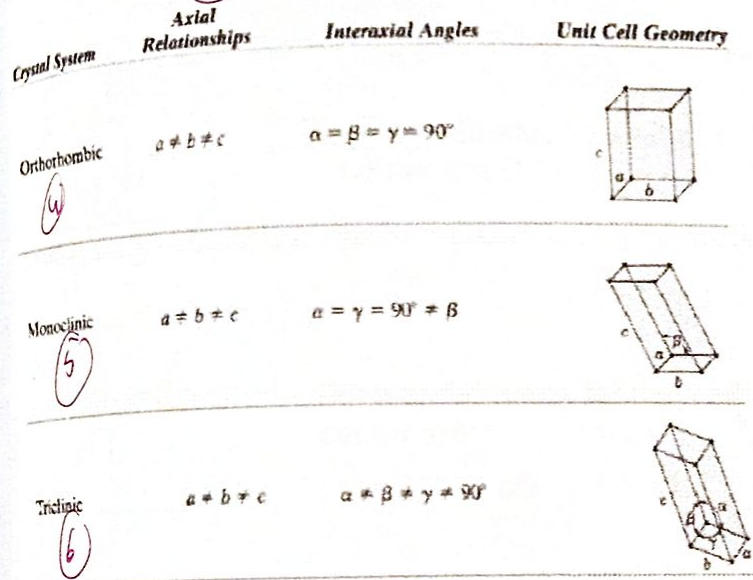 Crystal System Axial Relationships Interaxial Angles Unit Cell Geometry
Orthorhombic a ≠ b ≠ c α = β = γ = 90°
4
c
a
b
Monoclinic a ≠ b ≠ c α = γ = 90° ≠ β
5
c
β
a
b
Triclinic a ≠ b ≠ c α ≠ β ≠ γ ≠ 90°
6
c
α
β
γ
a
b